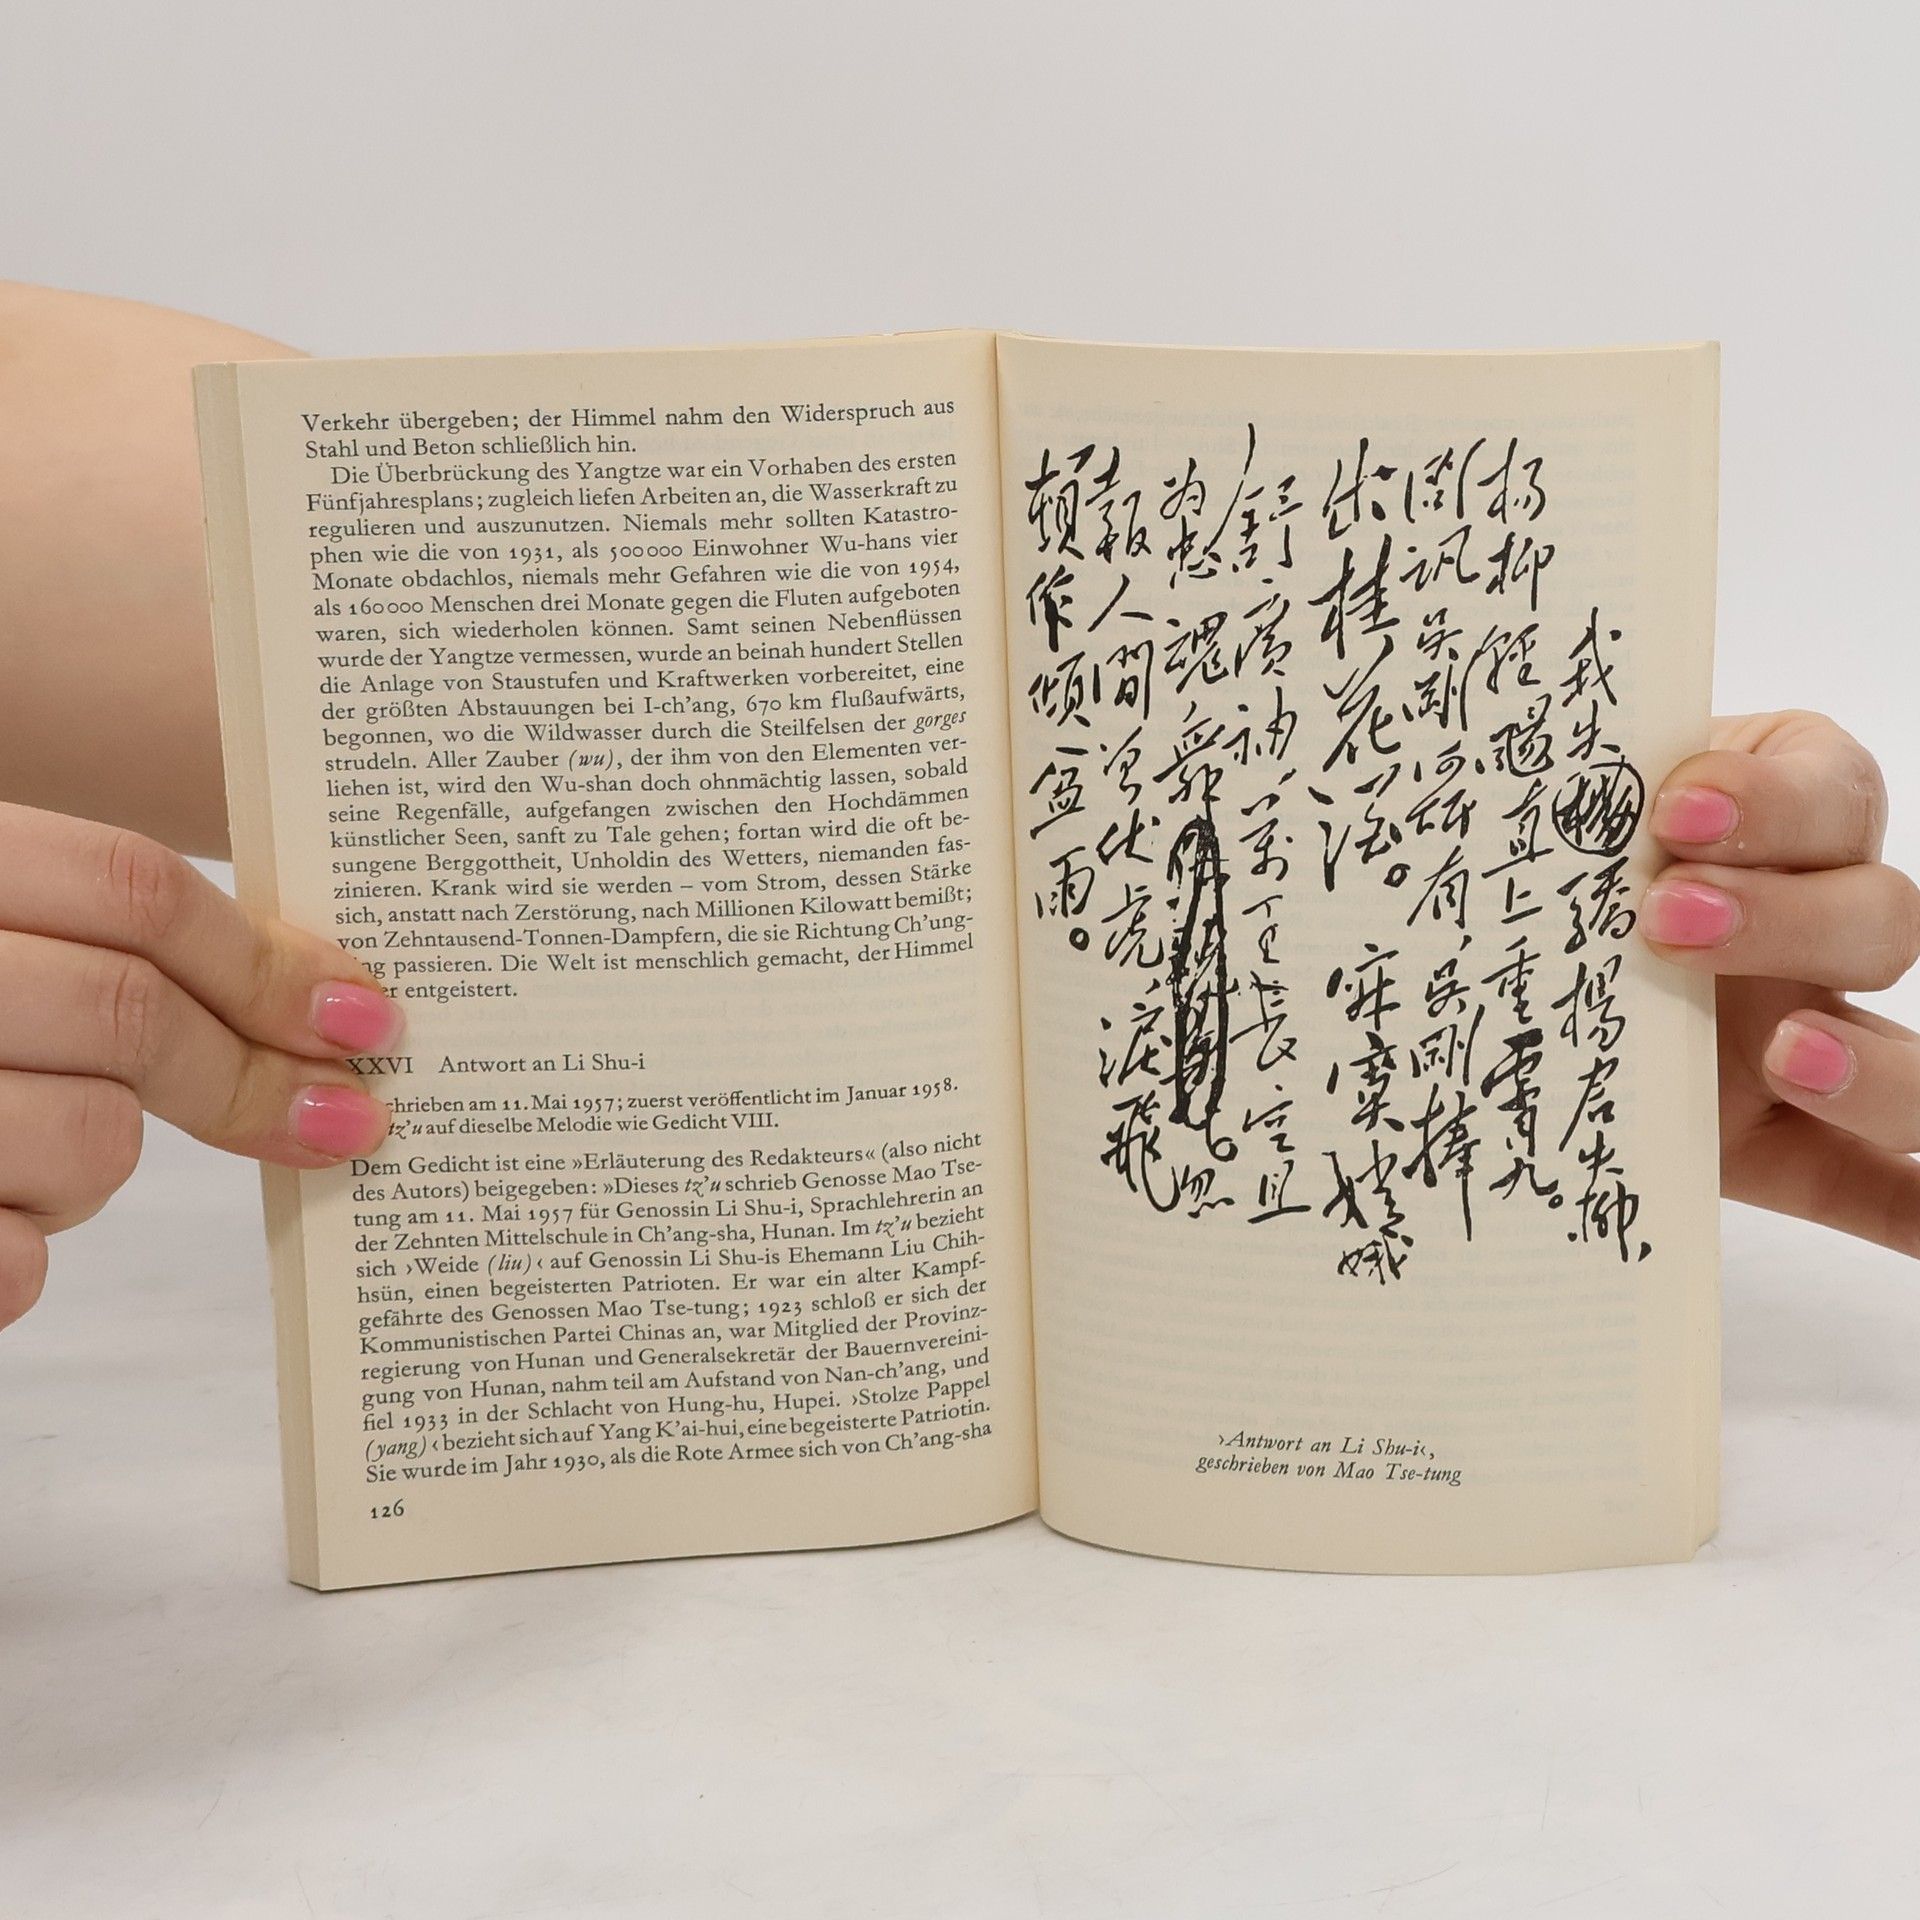 Verkehr übergeben; der Himmel nahm den Widerspruch aus
Stahl und Beton schließlich hin.
Die Überbrückung des Yangtze war ein Vorhaben des ersten
Fünfjahresplans; zugleich liefen Arbeiten an, die Wasserkraft zu
regulieren und auszunutzen. Niemals mehr sollten Katastro-
phen wie die von 1931, als 500000 Einwohner Wu-hans vier
Monate obdachlos, niemals mehr Gefahren wie die von 1954,
als 160000 Menschen drei Monate gegen die Fluten aufgeboten
waren, sich wiederholen können. Samt seinen Nebenflüssen
wurde der Yangtze vermessen, wurde an beinah hundert Stellen
die Anlage von Staustufen und Kraftwerken vorbereitet, eine
der größten Abstauungen bei I-ch'ang, 670 km flußaufwärts,
begonnen, wo die Wildwasser durch die Steilfelsen der gorges
strudeln. Aller Zauber (wu), der ihm von den Elementen ver-
liehen ist, wird den Wu-shan doch ohnmächtig lassen, sobald
seine Regenfälle, aufgefangen zwischen den Hochdämmen
künstlicher Seen, sanft zu Tale gehen; fortan wird die oft be-
sungene Berggottheit, Unholdin des Wetters, niemanden fas-
zinieren. Krank wird sie werden – vom Strom, dessen Stärke
sich, anstatt nach Zerstörung, nach Millionen Kilowatt bemißt;
von Zehntausend-Tonnen-Dampfern, die sie Richtung Ch'ung-
passieren. Die Welt ist menschlich gemacht, der Himmel
entgeistert.
XXVI Antwort an Li Shu-i
chrieben am 11. Mai 1957; zuerst veröffentlicht im Januar 1958.
tz'u auf dieselbe Melodie wie Gedicht VIII.
Dem Gedicht ist eine »Erläuterung des Redakteurs« (also nicht
des Autors) beigegeben: »Dieses tz'u schrieb Genosse Mao Tse-
tung am 11. Mai 1957 für Genossin Li Shu-i, Sprachlehrerin an
der Zehnten Mittelschule in Ch'ang-sha, Hunan. Im tz'u bezieht
sich ›Weide (liu)‹ auf Genossin Li Shu-is Ehemann Liu Chih-
hsün, einen begeisterten Patrioten. Er war ein alter Kampf-
gefährte des Genossen Mao Tse-tung; 1923 schloß er sich der
Kommunistischen Partei Chinas an, war Mitglied der Provinz-
regierung von Hunan und Generalsekretär der Bauernvereini-
gung von Hunan, nahm teil am Aufstand von Nan-ch'ang, und
fiel 1933 in der Schlacht von Hung-hu, Hupei. ›Stolze Pappel
(yang)‹ bezieht sich auf Yang K'ai-hui, eine begeisterte Patriotin.
Sie wurde im Jahr 1930, als die Rote Armee sich von Ch'ang-sha
126
我失驕楊君失柳,
楊柳輕颺直上重霄九。
問訊吳剛何所有,吳剛捧
出桂花酒。寂寞嫦娥
舒廣袖,萬里長空且
為忠魂舞。忽
報人間曾伏虎,淚飛
頓作傾盆雨。
›Antwort an Li Shu-i‹,
geschrieben von Mao Tse-tung